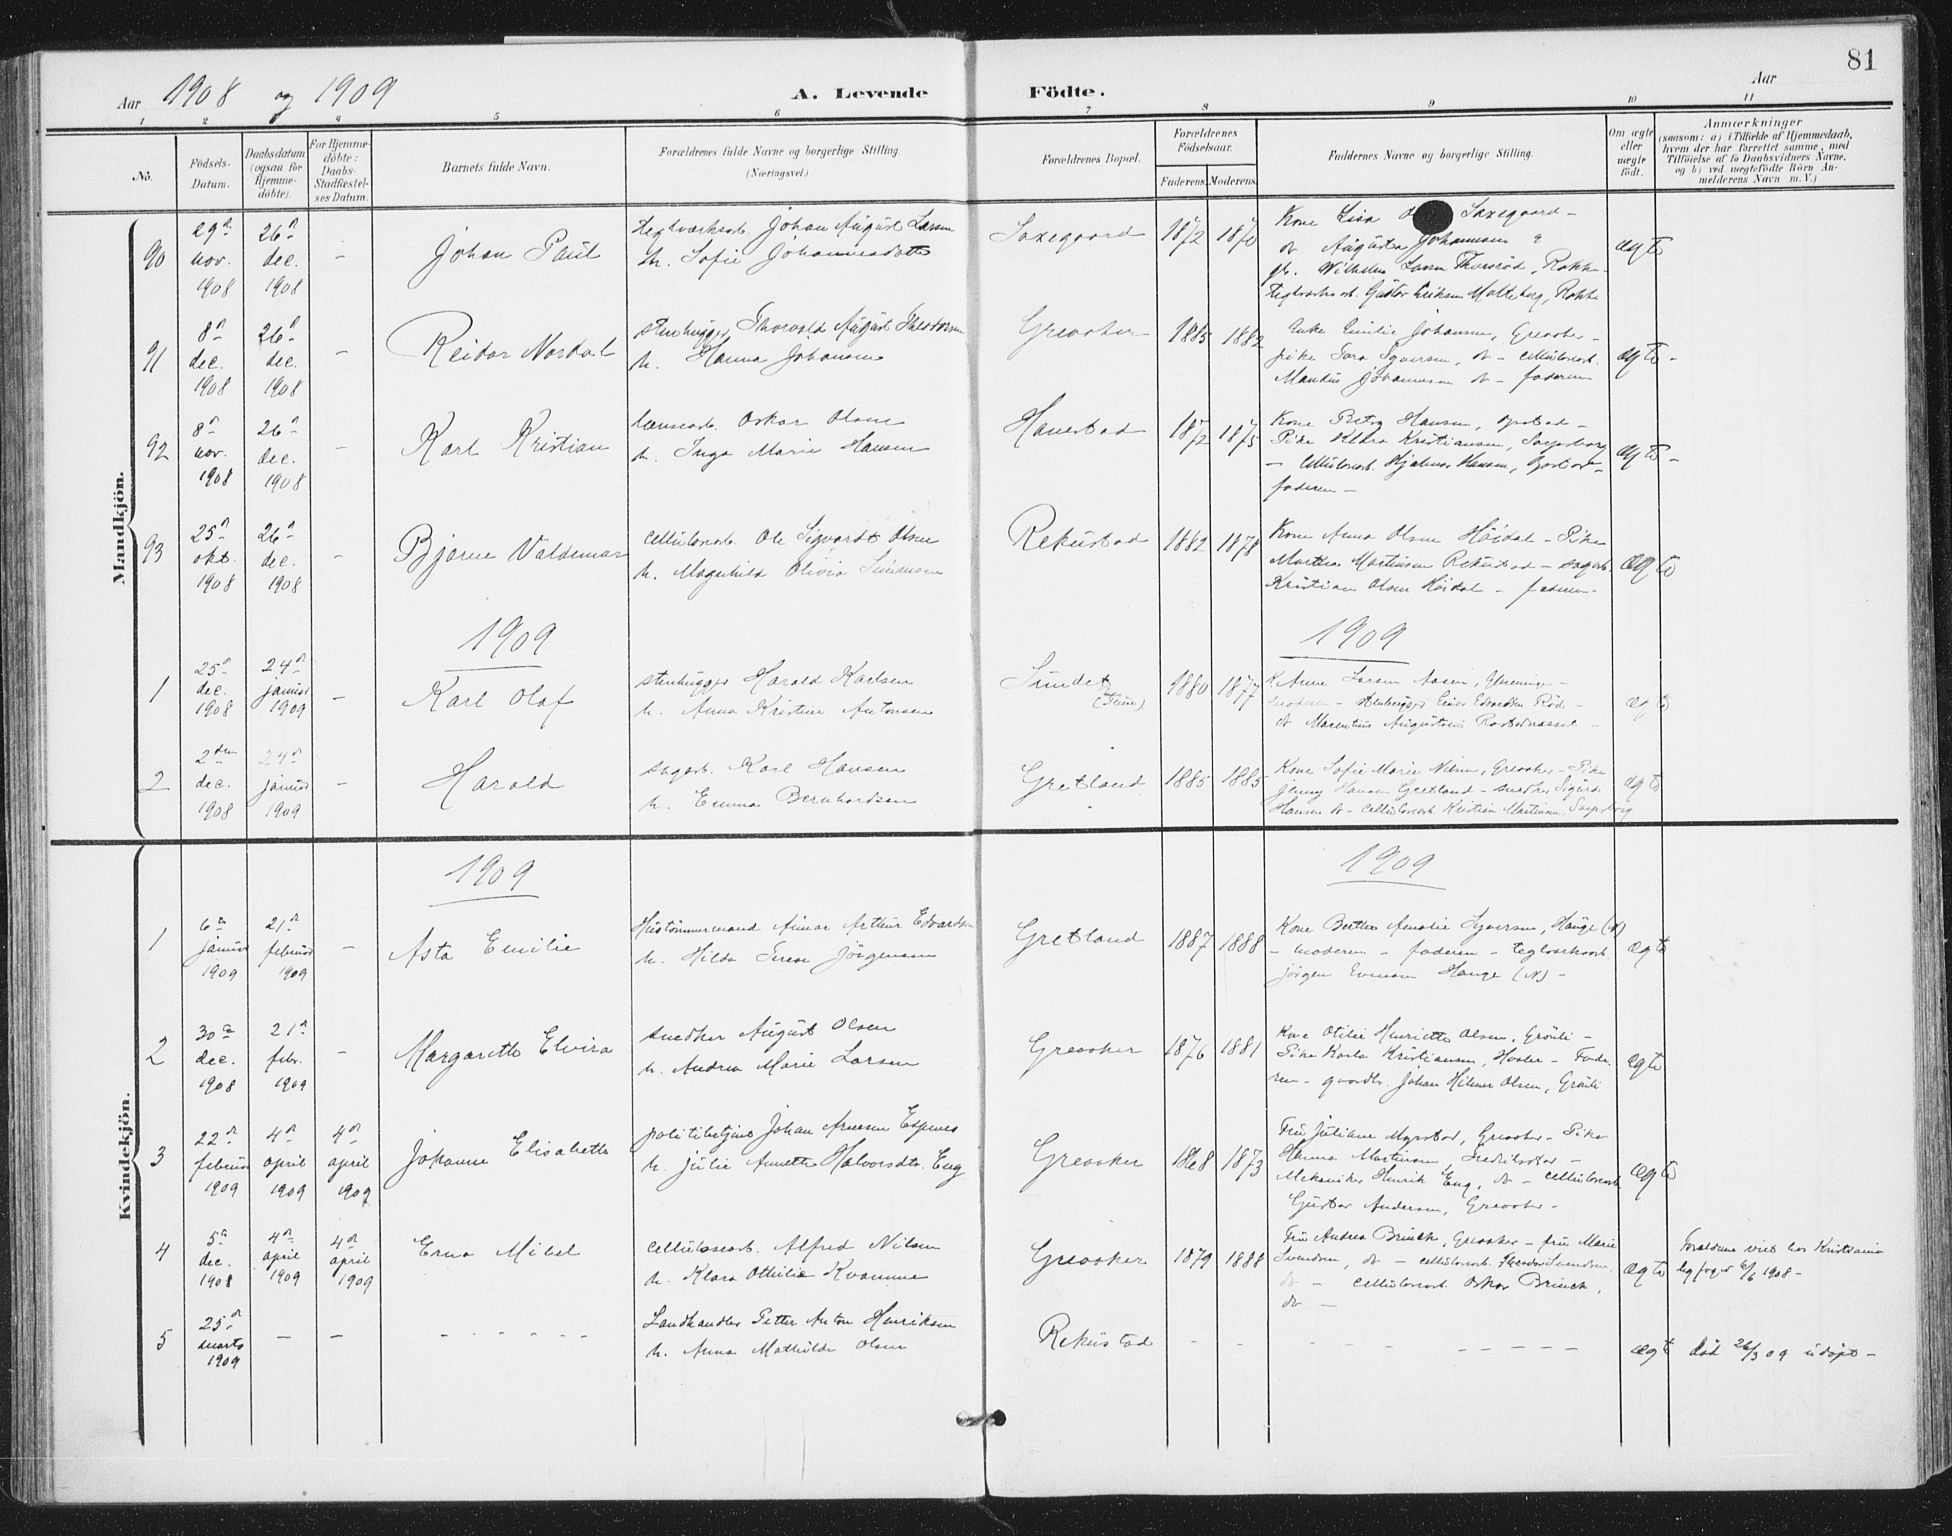 81
Aar 1908 og 1909
A. Levende Födte.
Aar
1 2 3 4 5 6 7 8 9 10 11
No.
Födsels-Datum.
Daabsdatum (ogsaa for Hjemme-döbte).
For Hjemme-döbte: Daabs-Stadfæstel-ses Datum.
Barnets fulde Navn.
Forældrenes fulde Navne og borgerlige Stilling. (Næringsvei.)
Forældrenes Bopæl.
Forældrenes Födselsaar.
Faderens. Moderens.
Faddernes Navne og borgerlige Stilling.
Om ægte eller uægte födt.
Anmærkninger
(saasom: a) i Tilfælde af Hjemmedaab, hvem der har forrettet samme, med Tilföielse af to Daabsvidners Navne, og b) ved uægtefödte Börn An-melderens Navn m. V.)
Mandkjön.
90
29de nov. 1908
26de dec. 1908
–
Johan Paul
teglværksarb. Johan August Larsen
h. Sofie Johannesdatter
Saxegaard
1872 1870
Kone Lisa Saxegaard –
do Augusta Johannesen
gb. Wilhelm Larsen Thorsrød, Rokke –
teglværksarb. Gustav Eriksen Molteberg, Rokke
ægte
91
8de dec. 1908
26de dec. 1908
–
Reidar Nordal
stenhugger Thorvald August Theodorsen
h. Hanna Johansen
Greaaker
1885 1882
Enke Emilie Johansen, Greaaker –
pike Sara Syversen, do – cellulosearb.
Mandius Johannesen do – faderen
ægte –
92
8de nov. 1908
26de dec. 1908
–
Karl Kristian
lænsearb. Oskar Olsen
h. Inga Marie Hansen
Hanestad
1872 1875
Kone Petra Hansen, Opstad –
Pike Klara Kristiansen, Sarpsborg
– cellulosearb. Hjalmar Hansen, Opstad –
faderen –
ægte –
93
25de okt. 1908
26de dec. 1908
–
Bjarne Valdemar
cellulosearb. Ole Sigvardt Olsen
h. Magnhild Olivia Simensen
Rekustad
1882 1878
Kone Anna Olsen Höidal – Pike
Martha Martinsen Rekustad – sagarb.
Kristian Olsen Höidal – faderen –
ægte
1909
1909
1
25de dec. 1908
24de januar 1909
–
Karl Olaf
stenhugger Harald Karlsen
h. Anna Kristine Antonsen
Sundet
1880 1877
K. Anne Larsen Aasen, Glemminge –
moderen – stenhugger Einar Edvardsen Röd –
do Marentius Augustsen
ægte
2
2den dec. 1908
24de januar 1909
–
Harald
sagarb. Karl Hansen
h. Emma Bernhardsen
Gretland
1885 1885
Kone Sofie Marie Nilsen, Greaaker – Pike
Jenny Hansen Gretland – snedker Sigurd
Hansen do – cellulosearb. Kristian Martinsen, Sarpsborg
ægte
Kvindekjön.
1909
1909
1
6te januar 1909
21de februar 1909
–
Asta Emilie
Hustömmermand Aimar Arthur Edvardsen
h. Hilda Terese Jörgensen
Gretland
1887 1888
Kone Berthe Amalie Syversen, Hauge (N)
– moderen – faderen – teglverksarb.
Jörgen Evensen Hauge (N) –
ægte
2
30te dec. 1908
21de febr. 1909
–
Margarethe Elvira
snedker August Olsen
h. Andrea Marie Larsen
Greaaker
1876 1881
Kone Otilie Henriette Olsen, Grönli –
Pike Karla Kristiansen, Hasler – Fade-
ren – gaardbr. Johan Hilmer Olsen, Grönli
ægte
3
22de februar 1909
4de april 1909
4de april 1909
Johanne Elisabeth
politibetjent Johan Arnesen Espenes
h. Julie Annette Halvorsdtr. Eng
Greaaker
1868 1873
Fru Juliane Myrstad, Greaaker – Pike
Hanna Martinsen, Fredrikstad –
Mekaniker Henrik Eng, do – cellulosearb.
Gustav Andersen, Greaaker –
ægte
4
5te dec. 1908
4de april 1909
4de april 1909
Erna Mibel
cellulosearb. Alfred Nilsen
h. Klara Othilie Kvamme
Greaaker
1879 1888
Fru Andrea Brinck, Greaaker – fru Marie
Svendsen, do – cellulosearb. Theodor Svendsen,
do – cellulosearb. Oskar Brinck,
do –
ægte
Forældrene viet hos Kristiania
byfoged 6/6 1908 –
5
25de marts 1909
– – – – – – –
Landhandler Petter Anton Henriksen
h. Anna Mathilde Olsen
Rekustad
– – – – – – – – –
ægte
död 26/3 09 udöpt –